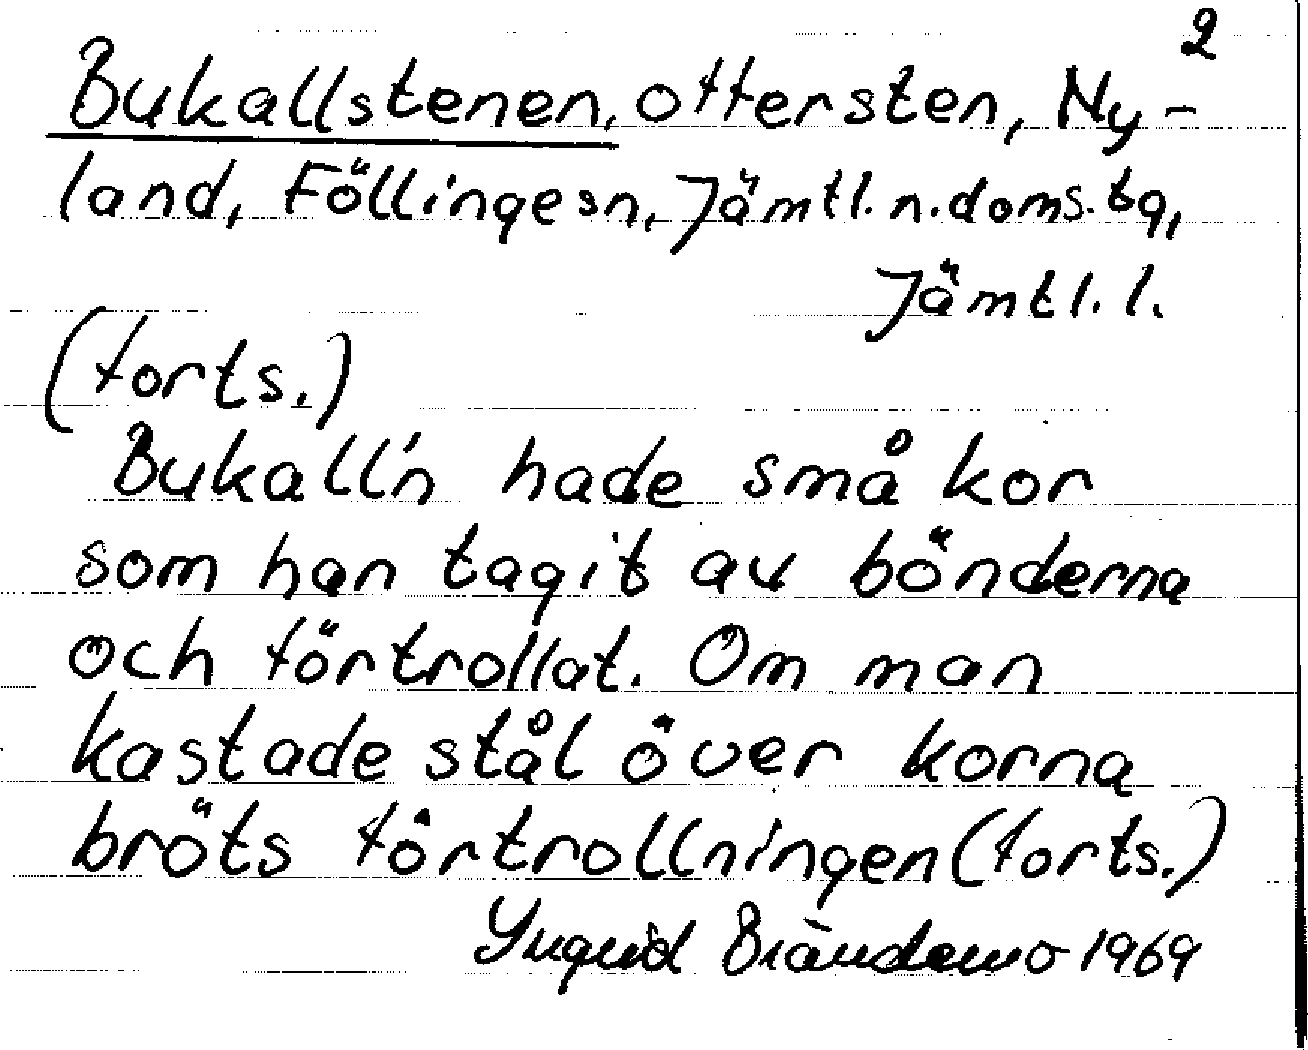 2
Bukallstenen, offersten, Ny-
land, Föllinge sn, Jämtl. n. doms. tg,
Jämtl. l.
(forts.)
Bukall'n hade små kor
som han tagit av bönderna
och förtrollat. Om man
kastade stål över korna
bröts förtrollningen (forts.)
Ingrid Brändemo 1969